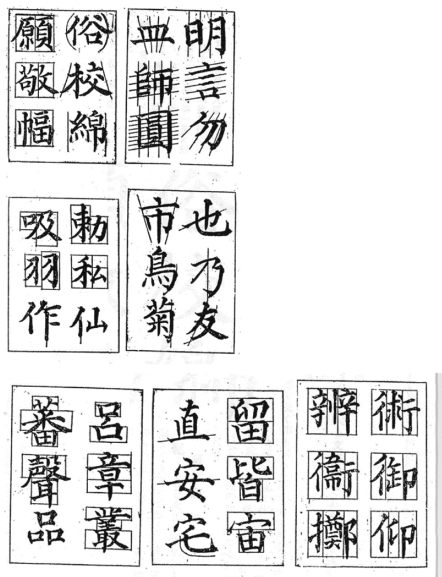 明言勿
皿師圓
俗校綿
願敬幅
也乃友
市鳥菊
勅私仙
吸羽作
術御仰
辨衞擲
留皆宙
直安宅
呂章叢
蕃聲品